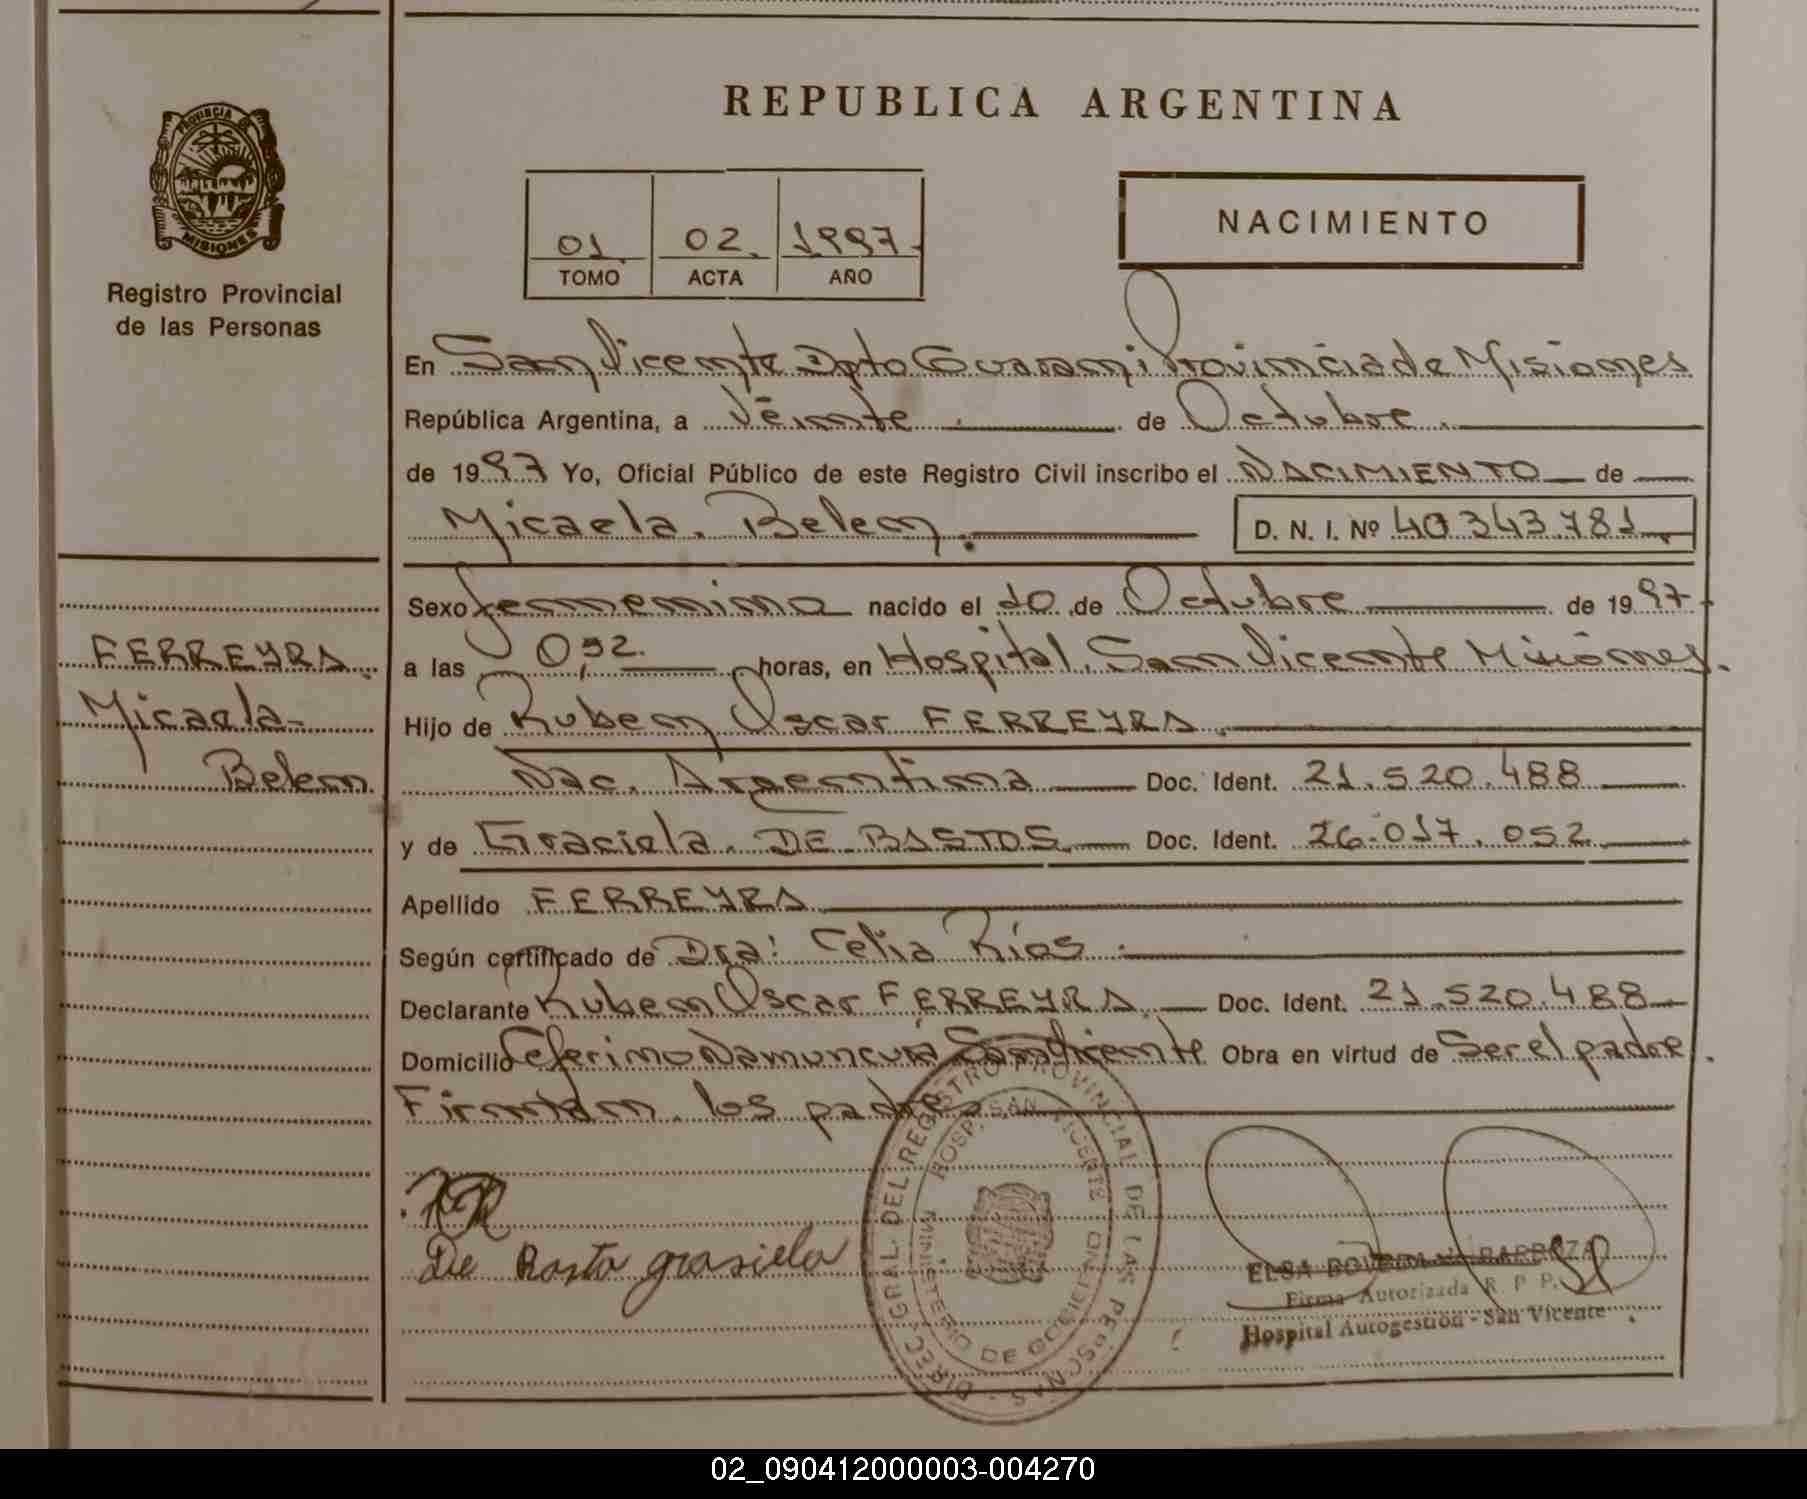 PROVINCIA DE
MISIONES
Registro Provincial
de las Personas
FERREYRA
Micaela
Belem
REPUBLICA ARGENTINA
01 02. 1997.
TOMO ACTA AÑO
NACIMIENTO
En San Vicente Dpto Guarani Provincia de Misiones
República Argentina, a Veinte de Octubre
de 1997 Yo, Oficial Público de este Registro Civil inscribo el NACIMIENTO de
Micaela. Belem. D. N. I. Nº 40 343.781
Sexo femenina nacido el 10 de Octubre de 1997
a las horas, en Hospital. San Vicente Misiones.
Hijo de Ruben Oscar FERREYRA.
Nac. Argentina Doc. Ident. 21.520.488
y de Graciela. DE BASTOS Doc. Ident. 26.017.052
Apellido FERREYRA
Según certificado de Dra: Celia Ríos
Declarante Ruben Oscar FERREYRA Doc. Ident. 21.520.488
Domicilio Ceferino Namuncurá San Vicente Obra en virtud de Ser el padre.
Firman los padres
De grasiela
DIREC. GRAL. DEL REGISTRO PROVINCIAL DE LAS PERSONAS
HOSP. SAN VICENTE
MINISTERIO DE GOBIERNO
ELSA BARBOZA
Firma Autorizada R. P. P.
Hospital Autogestión - San Vicente
02_090412000003-004270